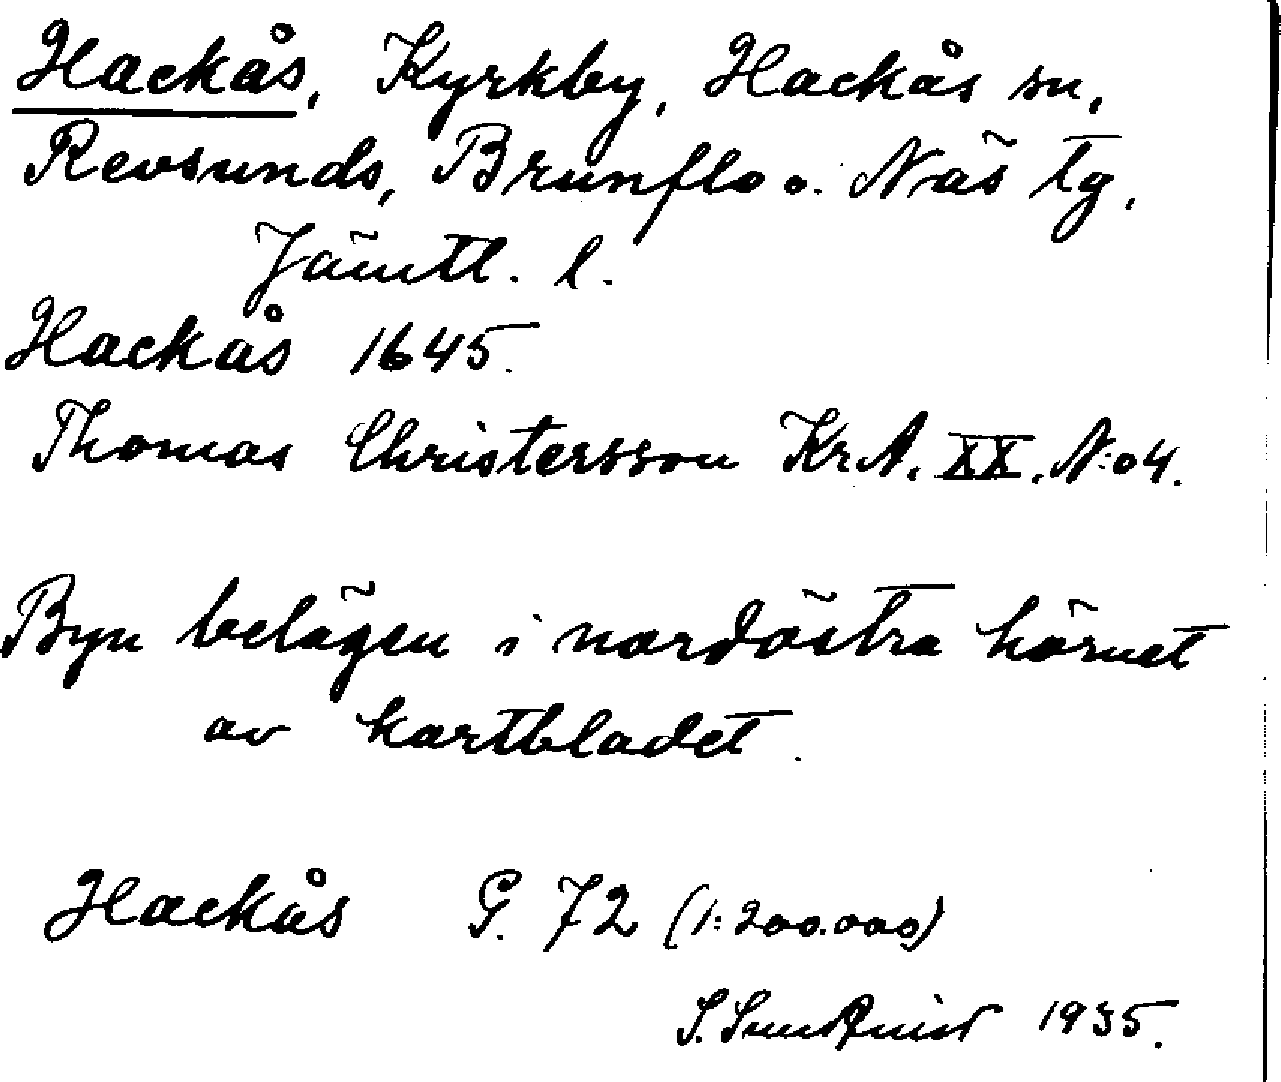 Hackås, Kyrkby, Hackås sn,
Revsunds, Brunflo o. Näs tg,
Jämtl. l.
Hackås 1645.
Thomas Christersson KrA. XX. N:o 4.
Byn belägen i nordöstra hörnet
av kartbladet.
Hackås G. 72 (1:200.000)
S. Sundquist 1935.